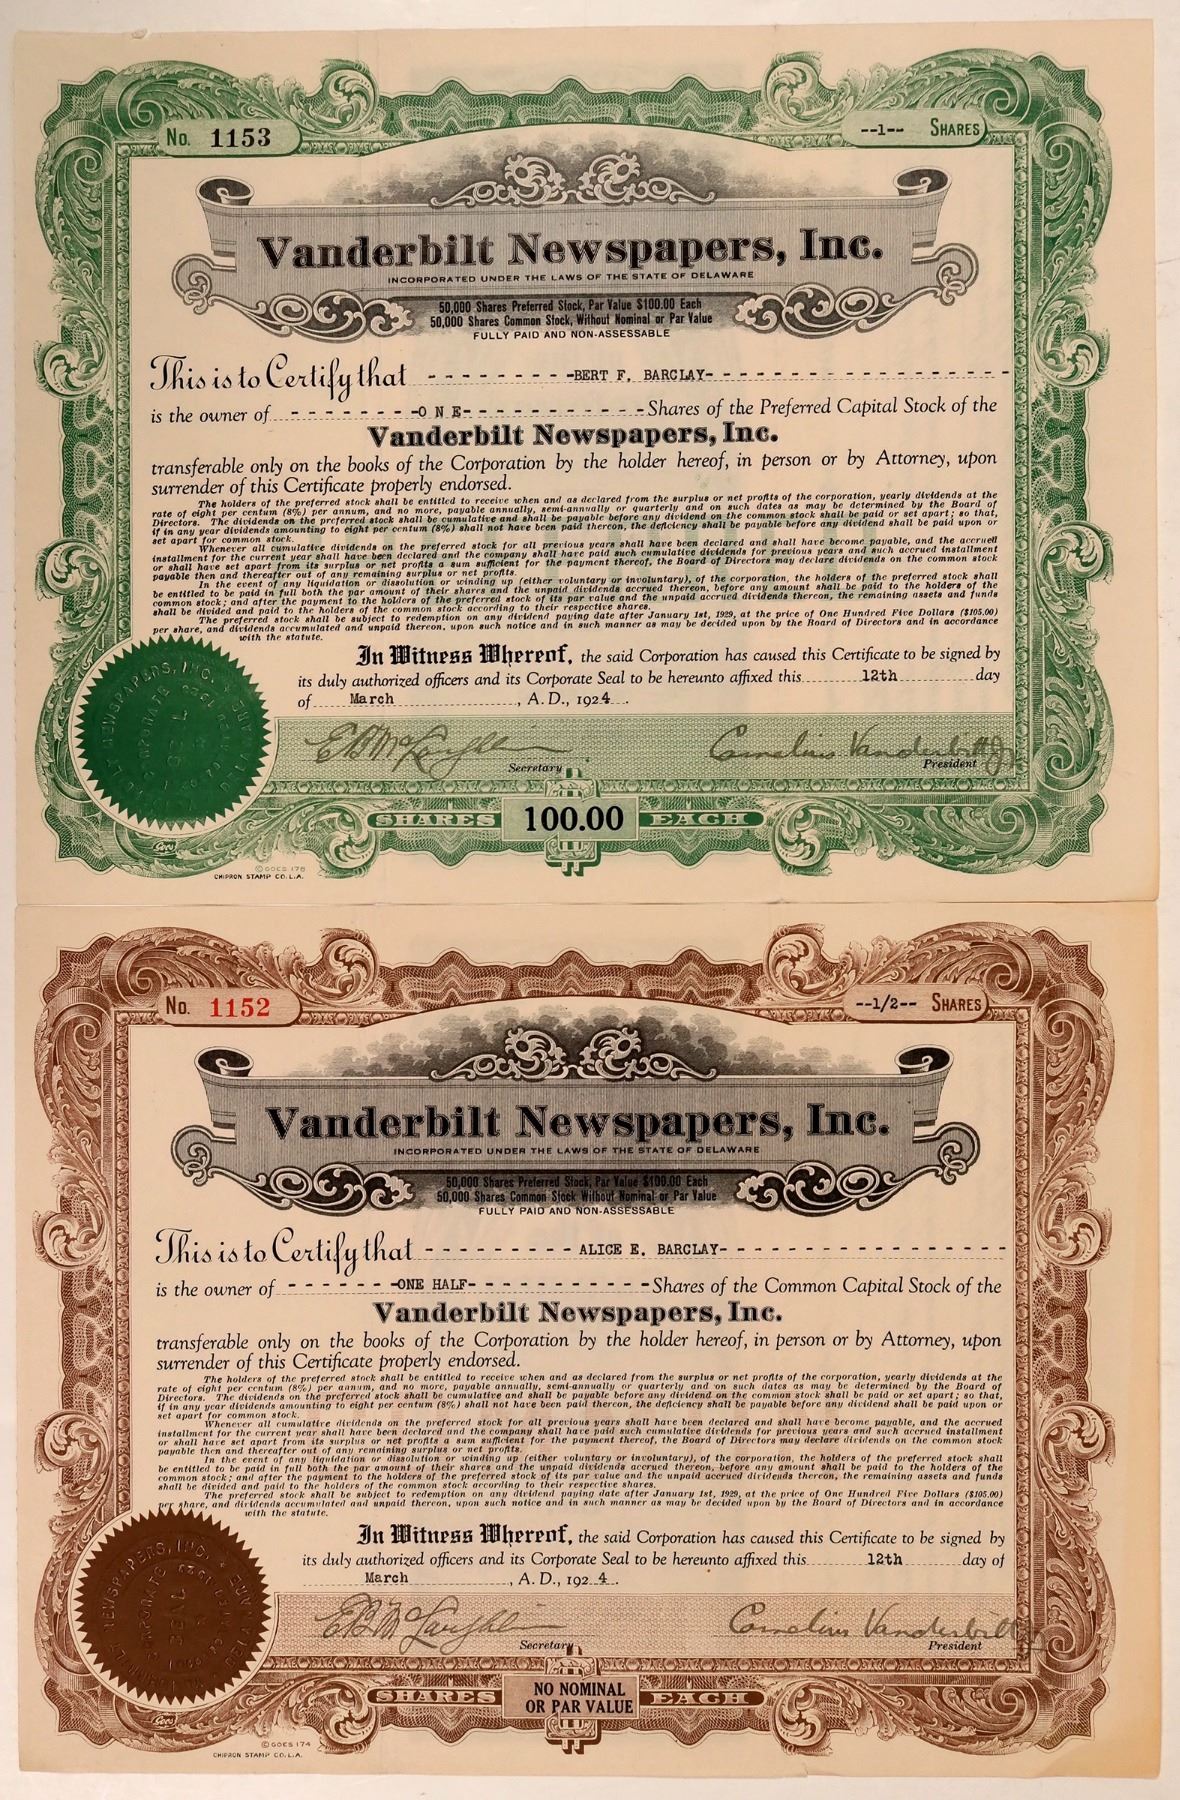 No. 1153
--1-- SHARES
Vanderbilt Newspapers, Inc.
INCORPORATED UNDER THE LAWS OF THE STATE OF DELAWARE
50,000 Shares Preferred Stock, Par Value $100.00 Each
50,000 Shares Common Stock, Without Nominal or Par Value
FULLY PAID AND NON-ASSESSABLE
This is to Certify that - - - - - - - - - -BERT F. BARCLAY- - - - - - - - - - - - - - - - - -
is the owner of - - - - - - - - -O N E- - - - - - - - - - - - Shares of the Preferred Capital Stock of the
Vanderbilt Newspapers, Inc.
transferable only on the books of the Corporation by the holder hereof, in person or by Attorney, upon
surrender of this Certificate properly endorsed.
The holders of the preferred stock shall be entitled to receive when and as declared from the surplus or net profits of the corporation, yearly dividends at the
rate of eight per centum (8%) per annum, and no more, payable annually, semi-annually or quarterly and on such dates as may be determined by the Board of
Directors. The dividends on the preferred stock shall be cumulative and shall be payable before any dividend on the common stock shall be paid or set apart; so that,
if in any year dividends amounting to eight per centum (8%) shall not have been paid thereon, the deficiency shall be payable before any dividend shall be paid upon or
set apart for common stock.
Whenever all cumulative dividends on the preferred stock for all previous years shall have been declared and shall have become payable, and the accrued
installment for the current year shall have been declared and the company shall have paid such cumulative dividends for previous years and such accrued installment
or shall have set apart from its surplus or net profits a sum sufficient for the payment thereof, the Board of Directors may declare dividends on the common stock
payable then and thereafter out of any remaining surplus or net profits.
In the event of any liquidation or dissolution or winding up (either voluntary or involuntary), of the corporation, the holders of the preferred stock shall
be entitled to be paid in full both the par amount of their shares and the unpaid dividends accrued thereon, before any amount shall be paid to the holders of the
common stock; and after the payment to the holders of the preferred stock of its par value and the unpaid accrued dividends thereon, the remaining assets and funds
shall be divided and paid to the holders of the common stock according to their respective shares.
The preferred stock shall be subject to redemption on any dividend paying date after January 1st, 1929, at the price of One Hundred Five Dollars ($105.00)
per share, and dividends accumulated and unpaid thereon, upon such notice and in such manner as may be decided upon by the Board of Directors and in accordance
with the statute.
In Witness Whereof, the said Corporation has caused this Certificate to be signed by
its duly authorized officers and its Corporate Seal to be hereunto affixed this 12th day
of March, A.D., 1924.
E B McLaughlin
Cornelius Vanderbilt Jr
Secretary
President
SHARES 100.00 EACH
Goes
© GOES 178
CHIPRON STAMP CO. L.A.
No. 1152
--1/2-- SHARES
Vanderbilt Newspapers, Inc.
INCORPORATED UNDER THE LAWS OF THE STATE OF DELAWARE
50,000 Shares Preferred Stock, Par Value $100.00 Each
50,000 Shares Common Stock Without Nominal or Par Value
FULLY PAID AND NON-ASSESSABLE
This is to Certify that - - - - - - - - - - ALICE E. BARCLAY- - - - - - - - - - - - - - - - - -
is the owner of - - - - - - -ONE HALF- - - - - - - - - - - - Shares of the Common Capital Stock of the
Vanderbilt Newspapers, Inc.
transferable only on the books of the Corporation by the holder hereof, in person or by Attorney, upon
surrender of this Certificate properly endorsed.
The holders of the preferred stock shall be entitled to receive when and as declared from the surplus or net profits of the corporation, yearly dividends at the
rate of eight per centum (8%) per annum, and no more, payable annually, semi-annually or quarterly and on such dates as may be determined by the Board of
Directors. The dividends on the preferred stock shall be cumulative and shall be payable before any dividend on the common stock shall be paid or set apart; so that,
if in any year dividends amounting to eight per centum (8%) shall not have been paid thereon, the deficiency shall be payable before any dividend shall be paid upon or
set apart for common stock.
Whenever all cumulative dividends on the preferred stock for all previous years shall have been declared and shall have become payable, and the accrued
installment for the current year shall have been declared and the company shall have paid such cumulative dividends for previous years and such accrued installment
or shall have set apart from its surplus or net profits a sum sufficient for the payment thereof, the Board of Directors may declare dividends on the common stock
payable then and thereafter out of any remaining surplus or net profits.
In the event of any liquidation or dissolution or winding up (either voluntary or involuntary), of the corporation, the holders of the preferred stock shall
be entitled to be paid in full both the par amount of their shares and the unpaid dividends accrued thereon, before any amount shall be paid to the holders of the
common stock; and after the payment to the holders of the preferred stock of its par value and the unpaid accrued dividends thereon, the remaining assets and funds
shall be divided and paid to the holders of the common stock according to their respective shares.
The preferred stock shall be subject to redemption on any dividend paying date after January 1st, 1929, at the price of One Hundred Five Dollars ($105.00)
per share, and dividends accumulated and unpaid thereon, upon such notice and in such manner as may be decided upon by the Board of Directors and in accordance
with the statute.
In Witness Whereof, the said Corporation has caused this Certificate to be signed by
its duly authorized officers and its Corporate Seal to be hereunto affixed this 12th day of
March, A.D., 1924.
E B McLaughlin
Cornelius Vanderbilt Jr
Secretary
President
SHARES NO NOMINAL OR PAR VALUE EACH
Goes
© GOES 174
CHIPRON STAMP CO. L.A.